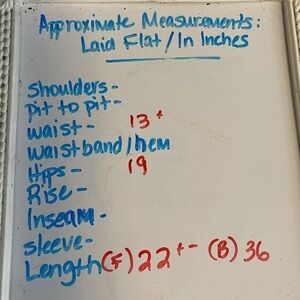 Approximate Measurements:
Laid Flat / In Inches
Shoulders -
Pit to pit -
Waist - 13 +
Waistband / hem
Hips - 19
Rise -
Inseam -
Sleeve -
Length (F) 22 + - (B) 36